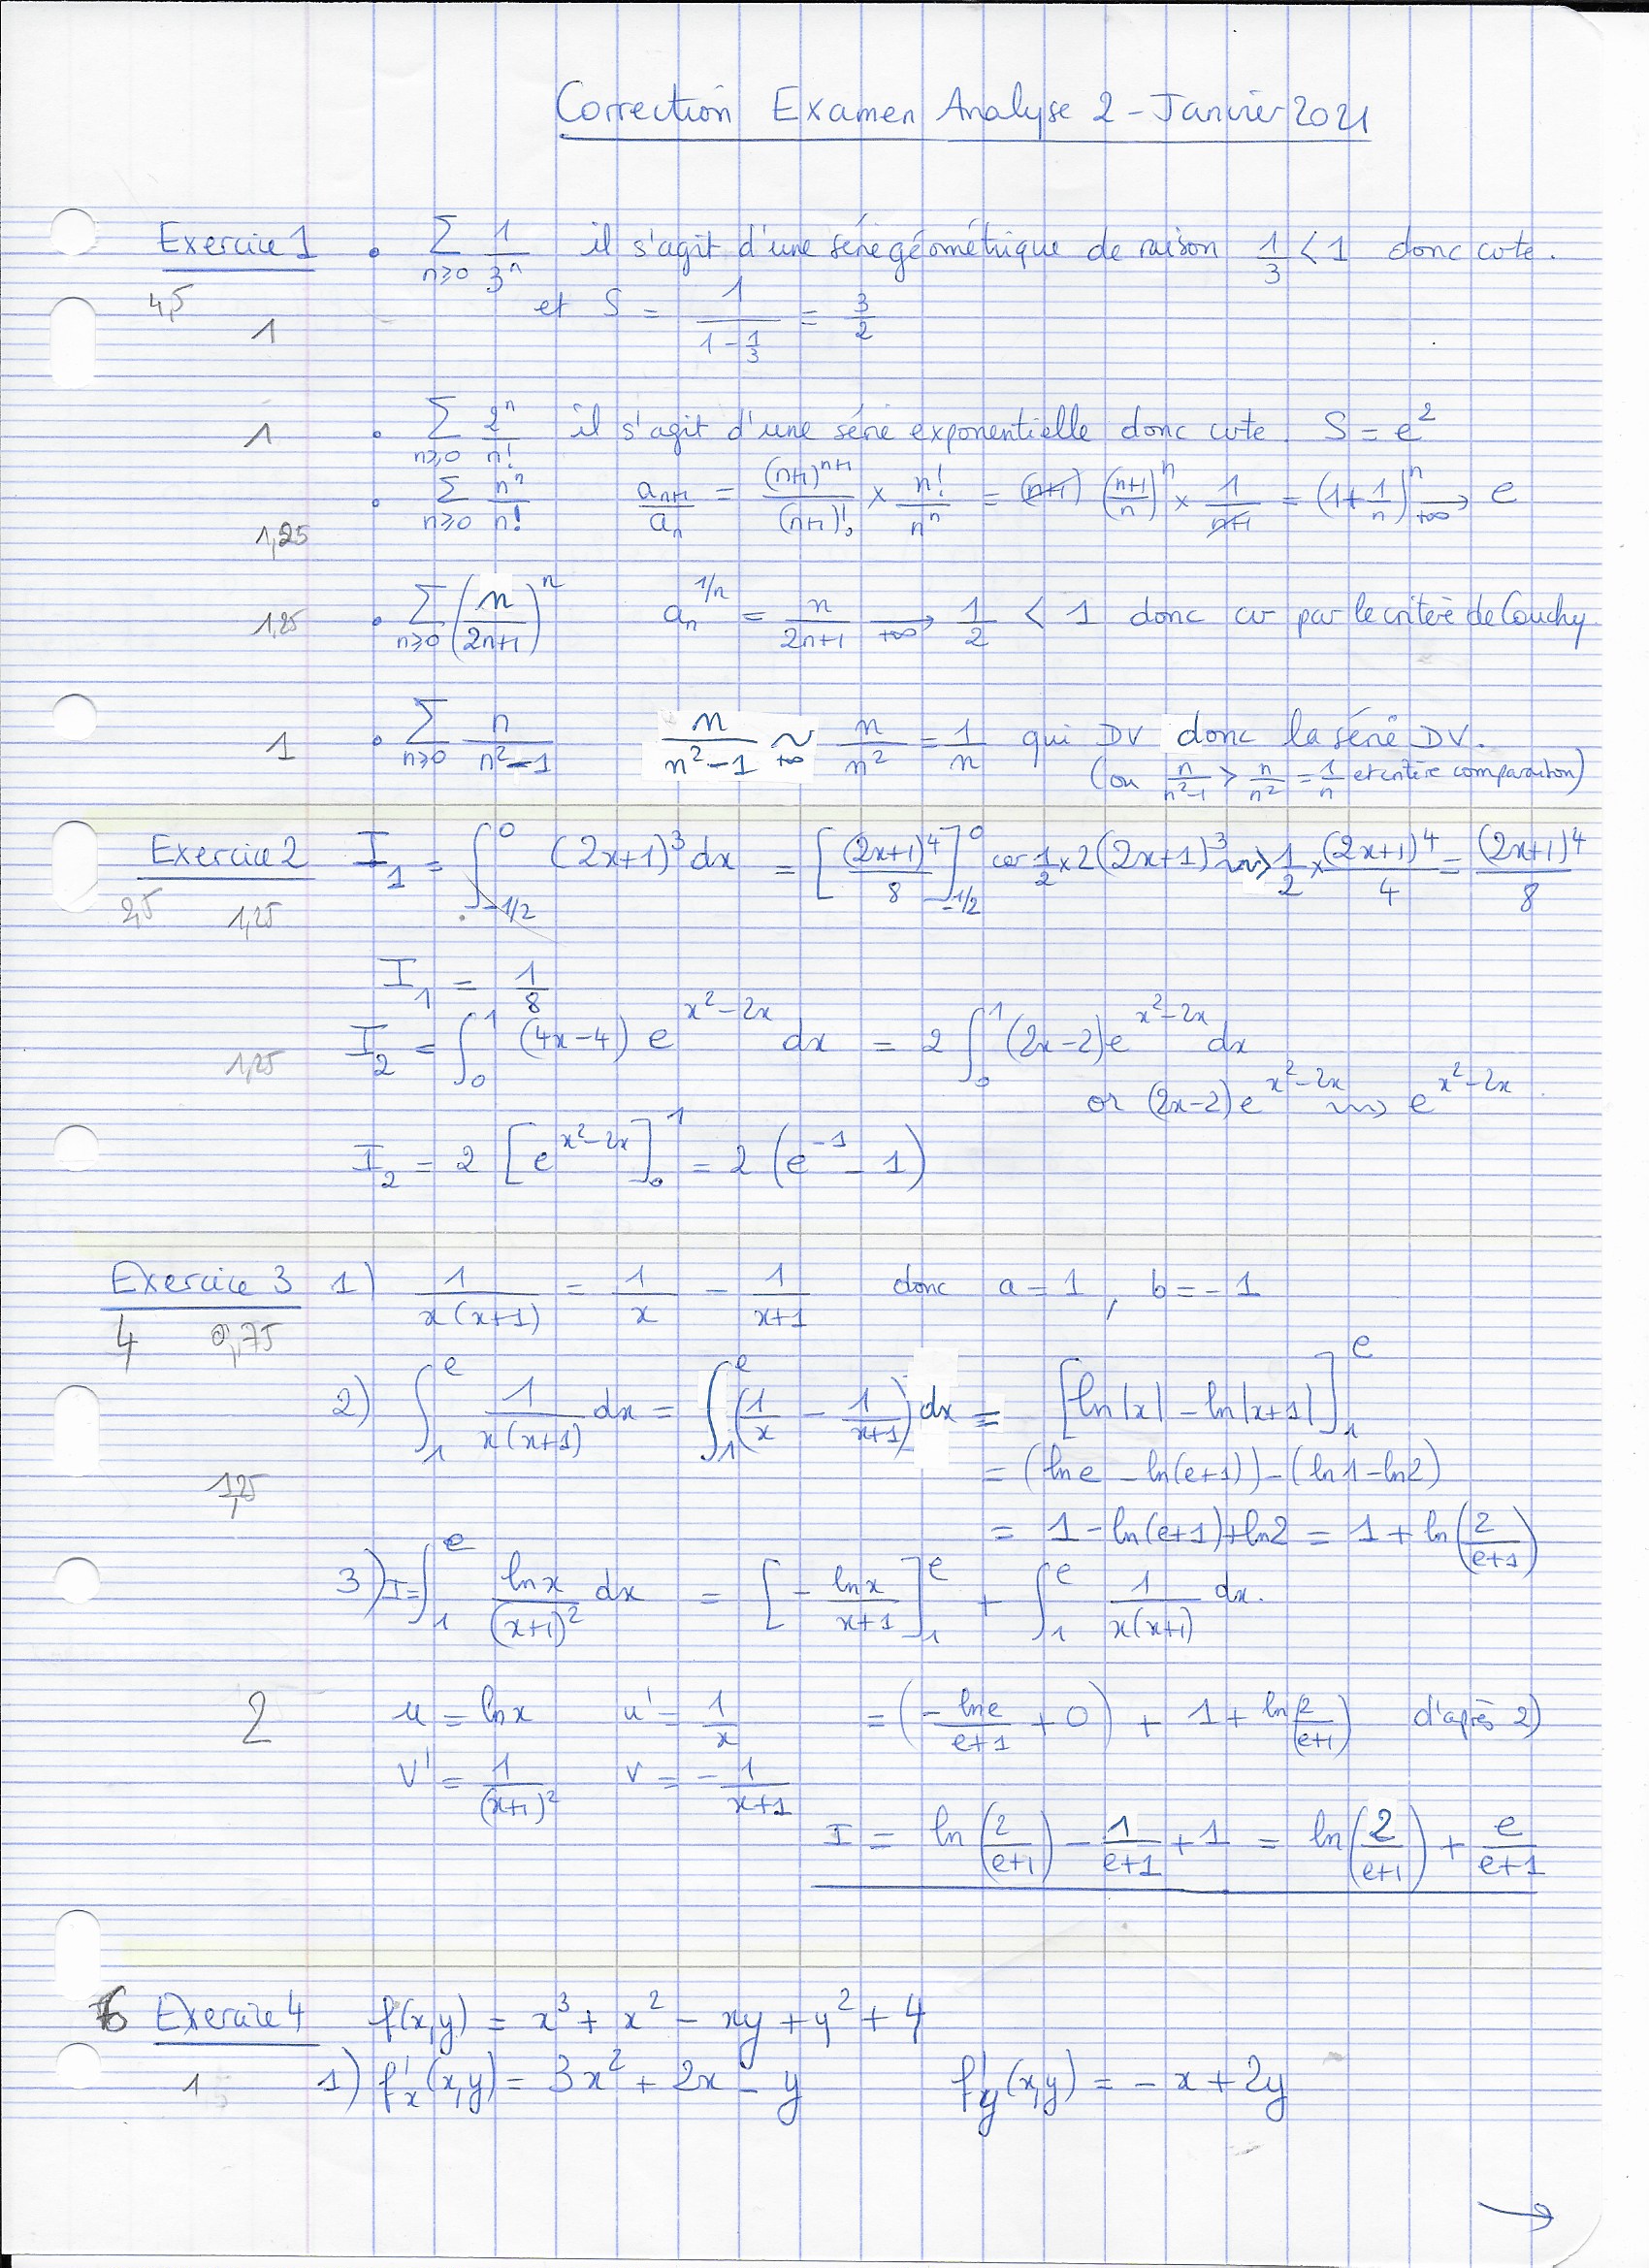 Correction Examen Analyse 2 - Janvier 2021
Exercice 1 • ∑_{n≥0} 1/3^n il s'agit d'une série géométrique de raison 1/3 < 1 donc cvte.
4,5 1 et S = 1/(1 - 1/3) = 3/2
1 • ∑_{n≥0} 2^n/n! il s'agit d'une série exponentielle donc cvte. S = e^2
1,25 • ∑_{n≥0} n^n/n! a_{n+1}/a_n = (n+1)^{n+1}/(n+1)! × n!/n^n = (n+1) ((n+1)/n)^n × 1/(n+1) = (1 + 1/n)^n →_{+∞} e
1,25 • ∑_{n≥0} (n/(2n+1))^n a_n^{1/n} = n/(2n+1) →_{+∞} 1/2 < 1 donc cv par le critère de Cauchy
1 • ∑_{n≥0} n/(n²-1) n/(n²-1) ~_{+∞} n/n² = 1/n qui DV donc la série DV.
(ou n/(n²-1) > n/n² = 1/n et critère comparaison)
Exercice 2 I_1 = ∫_{-1/2}^{0} (2x+1)^3 dx = [(2x+1)^4/8]_{-1/2}^{0} car 1/2 × 2(2x+1)^3 ⇝ 1/2 × (2x+1)^4/4 = (2x+1)^4/8
2,5 1,25
I_1 = 1/8
1,25 I_2 = ∫_0^1 (4x-4) e^{x²-2x} dx = 2 ∫_0^1 (2x-2) e^{x²-2x} dx
or (2x-2) e^{x²-2x} ⇝ e^{x²-2x}
I_2 = 2 [e^{x²-2x}]_0^1 = 2 (e^{-1} - 1)
Exercice 3 1) 1/(x(x+1)) = 1/x - 1/(x+1) donc a = 1, b = -1
4 0,75
2) ∫_1^e 1/(x(x+1)) dx = ∫_1^e (1/x - 1/(x+1)) dx = [ln|x| - ln|x+1|]_1^e
1,25 = (ln e - ln(e+1)) - (ln 1 - ln 2)
= 1 - ln(e+1) + ln 2 = 1 + ln(2/(e+1))
3) I = ∫_1^e ln x/(x+1)² dx = [- ln x/(x+1)]_1^e + ∫_1^e 1/(x(x+1)) dx.
2 u = ln x u' = 1/x = (- ln e/(e+1) + 0) + 1 + ln(2/(e+1)) d'après 2)
v' = 1/(x+1)² v = - 1/(x+1)
I = ln(2/(e+1)) - 1/(e+1) + 1 = ln(2/(e+1)) + e/(e+1)
6 Exercice 4 f(x,y) = x³ + x² - xy + y² + 4
1 1) f'_x(x,y) = 3x² + 2x - y f'_y(x,y) = -x + 2y
→